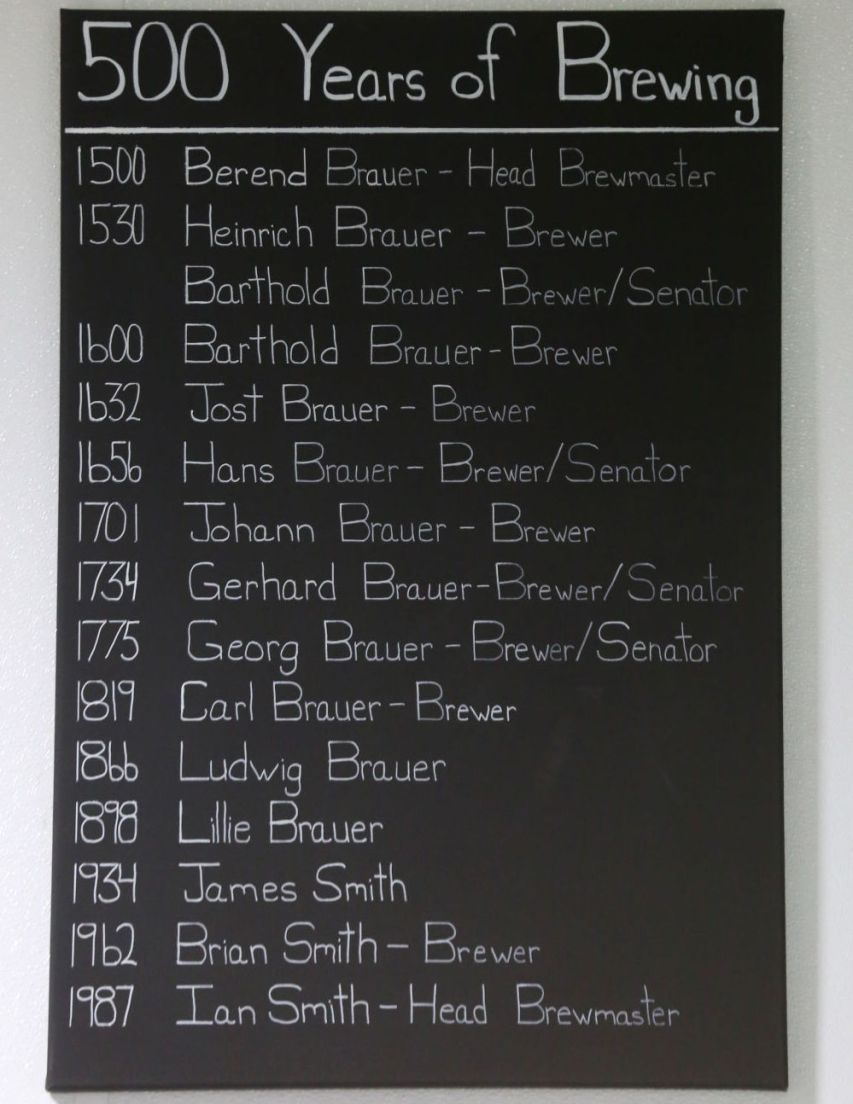 500 Years of Brewing
1500 Berend Brauer - Head Brewmaster
1530 Heinrich Brauer - Brewer
Barthold Brauer - Brewer/Senator
1600 Barthold Brauer - Brewer
1632 Jost Brauer - Brewer
1656 Hans Brauer - Brewer/Senator
1701 Johann Brauer - Brewer
1734 Gerhard Brauer - Brewer/Senator
1775 Georg Brauer - Brewer/Senator
1819 Carl Brauer - Brewer
1866 Ludwig Brauer
1898 Lillie Brauer
1934 James Smith
1962 Brian Smith - Brewer
1987 Ian Smith - Head Brewmaster